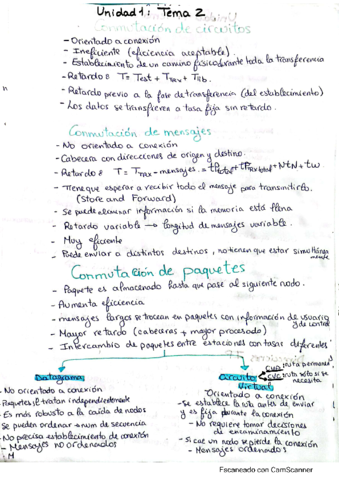 Unidad 1: Tema 2
Conmutación de circuitos
- Orientado a conexión
- Ineficiente (eficiencia aceptable).
- Establecimiento de un camino físico durante toda la transferencia
- Retardo: T = Test + Ttrev + Tlib.
- Retardo previo a la fase de transferencia (del establecimiento)
- Los datos se transfieren a tasa fija sin retardo.
Conmutación de mensajes
- No orientado a conexión
- Cabecera con direcciones de origen y destino.
- Tiene que esperar a recibir todo el mensaje para transmitirlo.
(Store and Forward)
- Se puede eliminar información si la memoria está llena
- Retardo variable → longitud de mensajes variable.
- Muy eficiente
- Puede enviar a distintos destinos, no tienen que estar simultáneamente
Conmutación de paquetes
- Paquete es almacenado hasta que pase al siguiente nodo.
- Aumenta eficiencia
- mensajes largos se trocean en paquetes con información de usuario y de control
- Mayor retardo (cabeceras + mayor procesado)
- Intercambio de paquetes entre estaciones con tasas diferentes
Datagrama
- No orientado a conexión
- Paquetes se tratan independientemente
- Es más robusto a la caída de nodos
- Se pueden ordenar → num de secuencia
- No preciso establecimiento de conexión
- Mensajes no ordenados
Circuito Virtual
CVP ruta permanente
CVC ruta sólo si se necesita
Orientado a conexión
- Se establece la ruta antes de enviar
y es fija durante la conexión
- No requiere tomar decisiones
de encaminamiento
- Si cae un nodo se pierde la conexión
- Mensajes ordenados
Escaneado con CamScanner